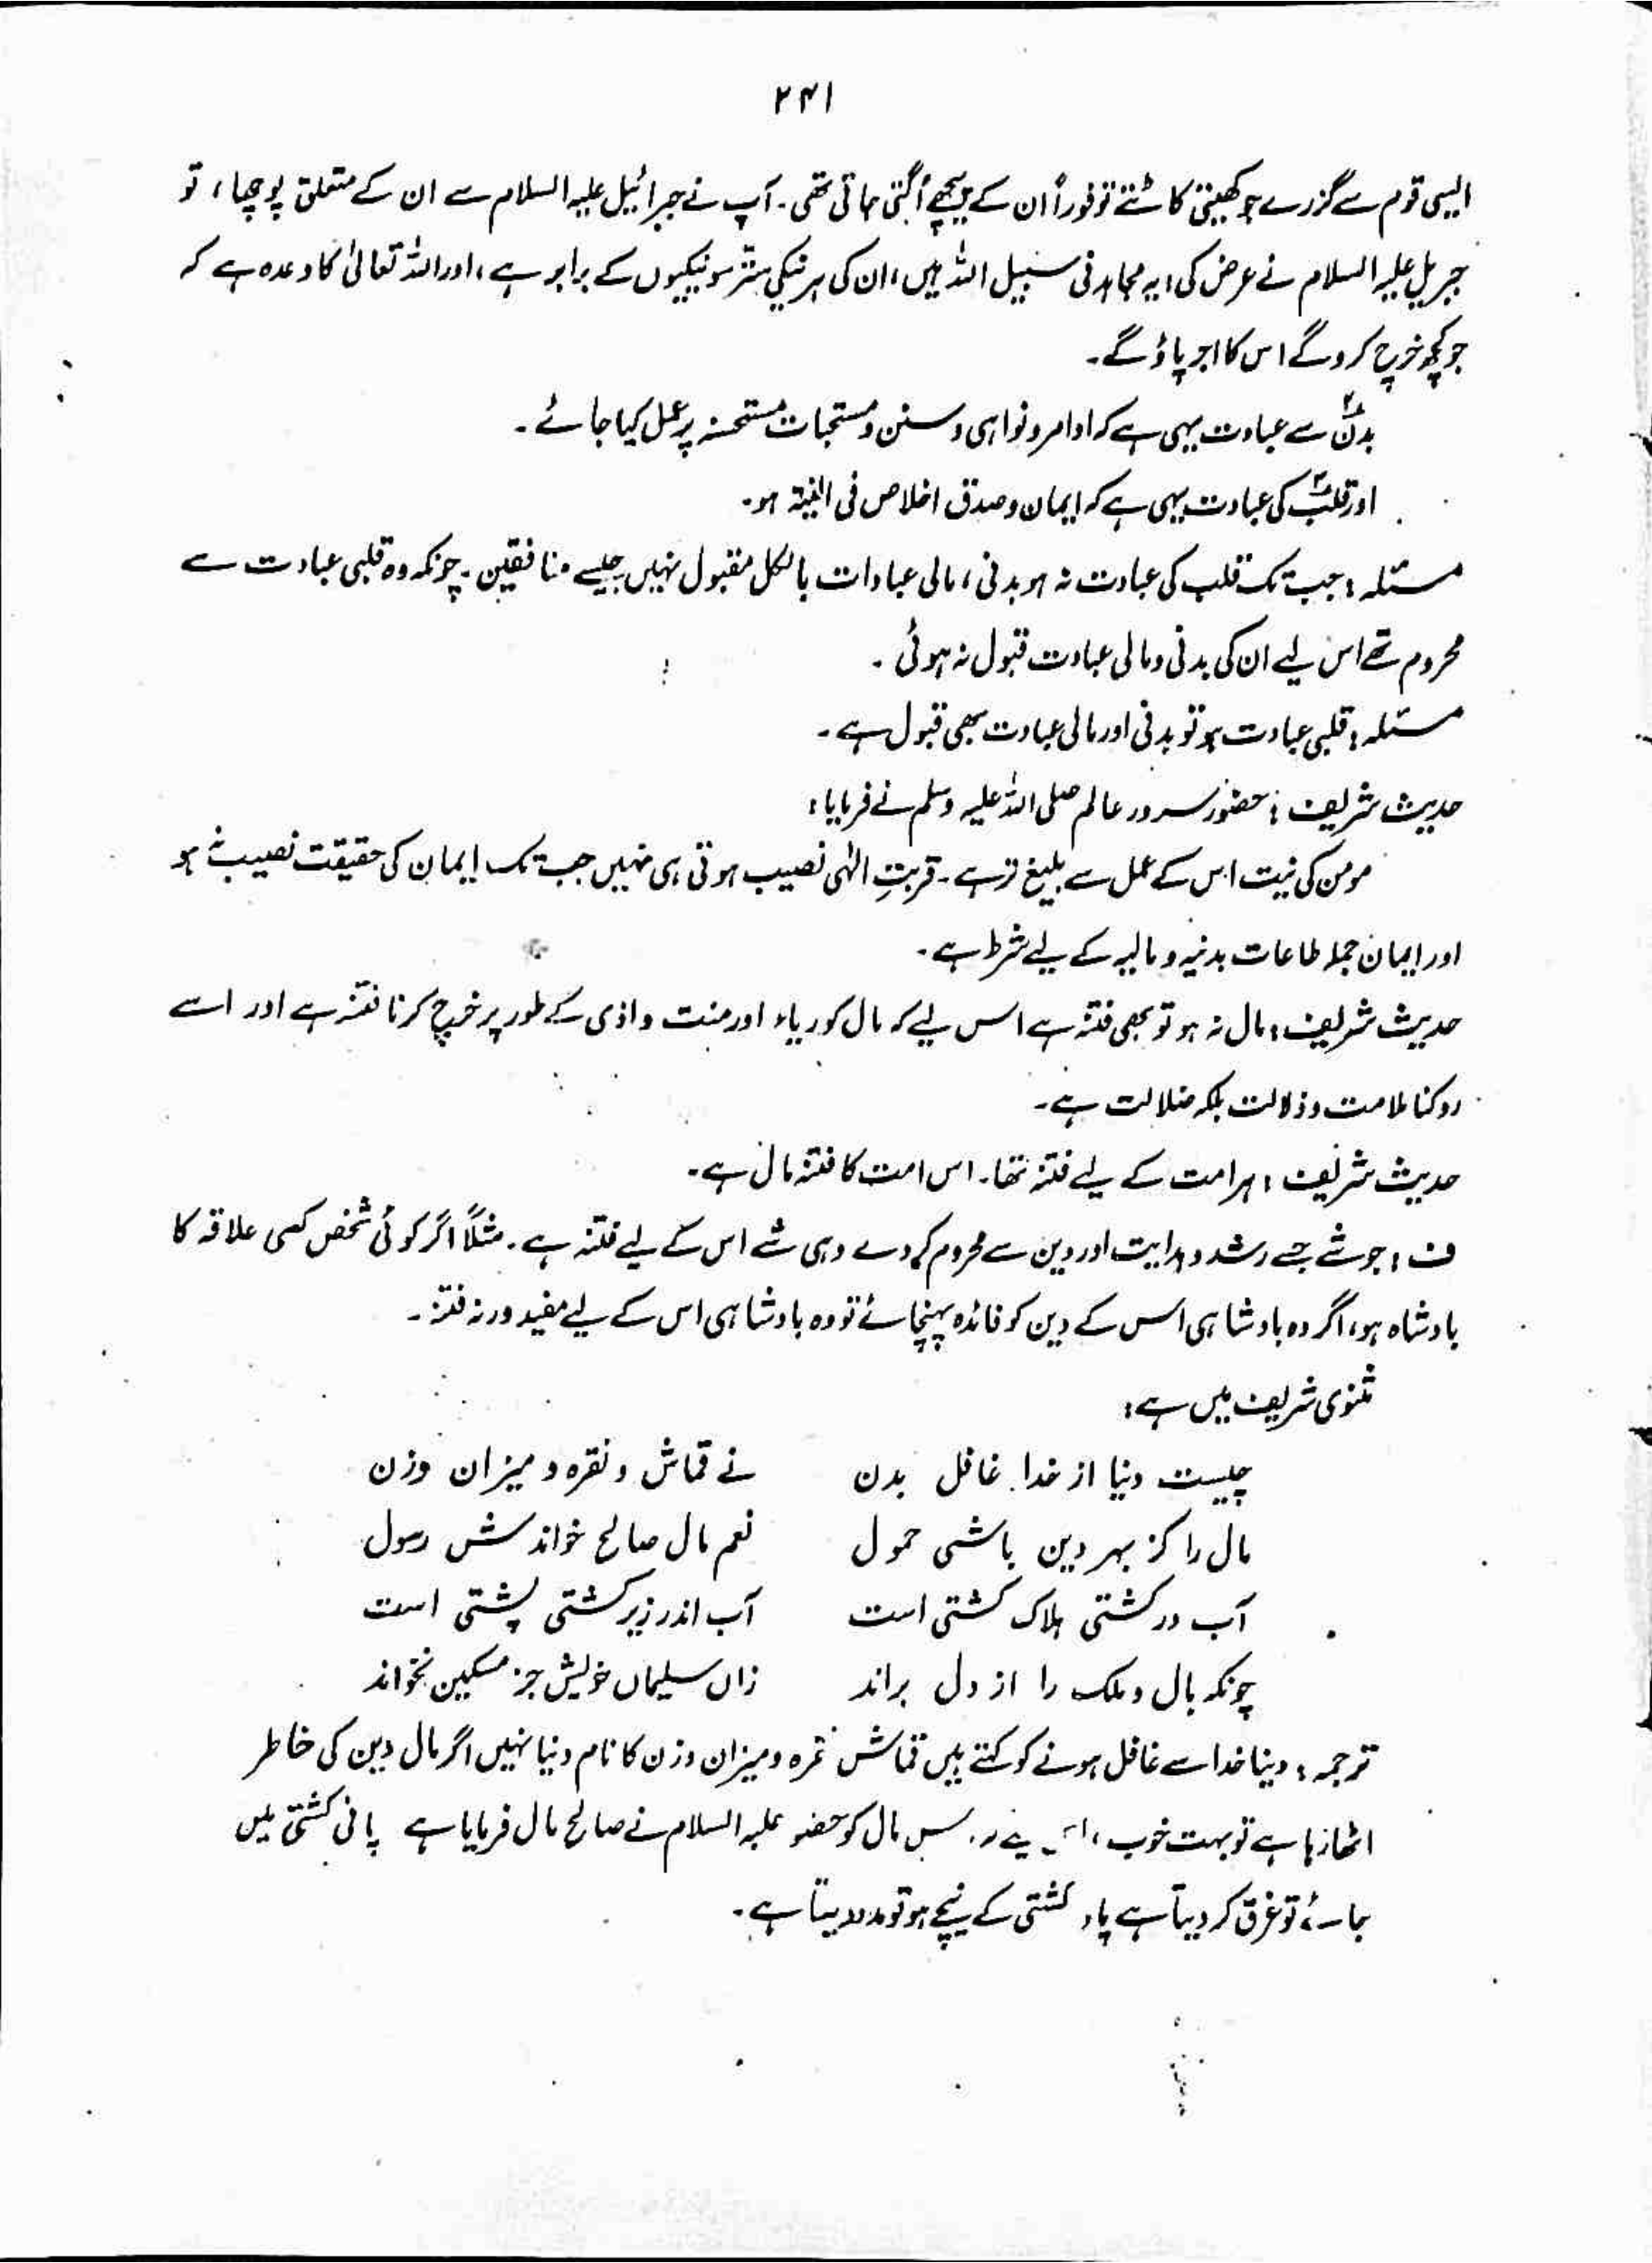 ۲۴۱
ایسی قوم سے گزرے جو کھیتی کاٹتے تو فوراً ان کے پیچھے اُگتی جاتی تھی۔ آپ نے جبرائیل علیہ السلام سے ان کے متعلق پوچھا، تو
جبریل علیہ السلام نے عرض کی: یہ مجاہد فی سبیل اللہ ہیں، ان کی ہر نیکی ستّر سو نیکیوں کے برابر ہے، اور اللہ تعالیٰ کا وعدہ ہے کہ
جو کچھ خرچ کرو گے اس کا اجر پاؤ گے۔
بدن سے عبادت یہی ہے کہ اوامر و نواہی و سنن و مستحبات مستحسنہ پر عمل کیا جائے۔
اور قلب کی عبادت یہی ہے کہ ایمان و صدق اخلاص فی النیۃ ہو۔
مسئلہ: جب تک قلب کی عبادت نہ ہو بدنی، مالی عبادات بالکل مقبول نہیں جیسے منافقین۔ چونکہ وہ قلبی عبادت سے
محروم تھے اس لیے ان کی بدنی و مالی عبادت قبول نہ ہوئی۔
مسئلہ: قلبی عبادت ہو تو بدنی اور مالی عبادت بھی قبول ہے۔
حدیث شریف: حضور سرور عالم صلی اللہ علیہ وسلم نے فرمایا:
مومن کی نیت اس کے عمل سے بلیغ تر ہے۔ قربتِ الٰہی نصیب ہوتی ہی نہیں جب تک ایمان کی حقیقت نصیب نہ ہو
اور ایمان جملہ طاعات بدنیہ و مالیہ کے لیے شرط ہے۔
حدیث شریف: مال نہ ہو تو بھی فتنہ ہے اس لیے کہ مال کو ریاء اور منت و اذی کے طور پر خرچ کرنا فتنہ ہے اور اسے
روکنا ملامت و ذلالت بلکہ ضلالت ہے۔
حدیث شریف: ہر امت کے لیے فتنہ تھا۔ اس امت کا فتنہ مال ہے۔
ف: جو شے جسے رشد و ہدایت اور دین سے محروم کر دے وہی شے اس کے لیے فتنہ ہے۔ مثلاً اگر کوئی شخص کسی علاقہ کا
بادشاہ ہو، اگر وہ بادشاہی اس کے دین کو فائدہ پہنچائے تو وہ بادشاہی اس کے لیے مفید ورنہ فتنہ۔
مثنوی شریف میں ہے:
چیست دنیا از خدا غافل بدن نے قماش و نقرہ و میزان وزن
مال را کز بہر دین باشی حمول نعم مال صالح خواندش رسول
آب در کشتی ہلاک کشتی است آب اندر زیر کشتی پشتی است
چونکہ مال و ملک را از دل براند زاں سلیماں خویش جز مسکین نخواند
ترجمہ: دنیا خدا سے غافل ہونے کو کہتے ہیں قماش نقرہ و میزان وزن کا نام دنیا نہیں اگر مال دین کی خاطر
اٹھا رہا ہے تو بہت خوب، مال کو حضور علیہ السلام نے صالح مال فرمایا ہے پانی کشتی میں
جائے تو غرق کر دیتا ہے کشتی کے نیچے ہو تو مدد دیتا ہے۔